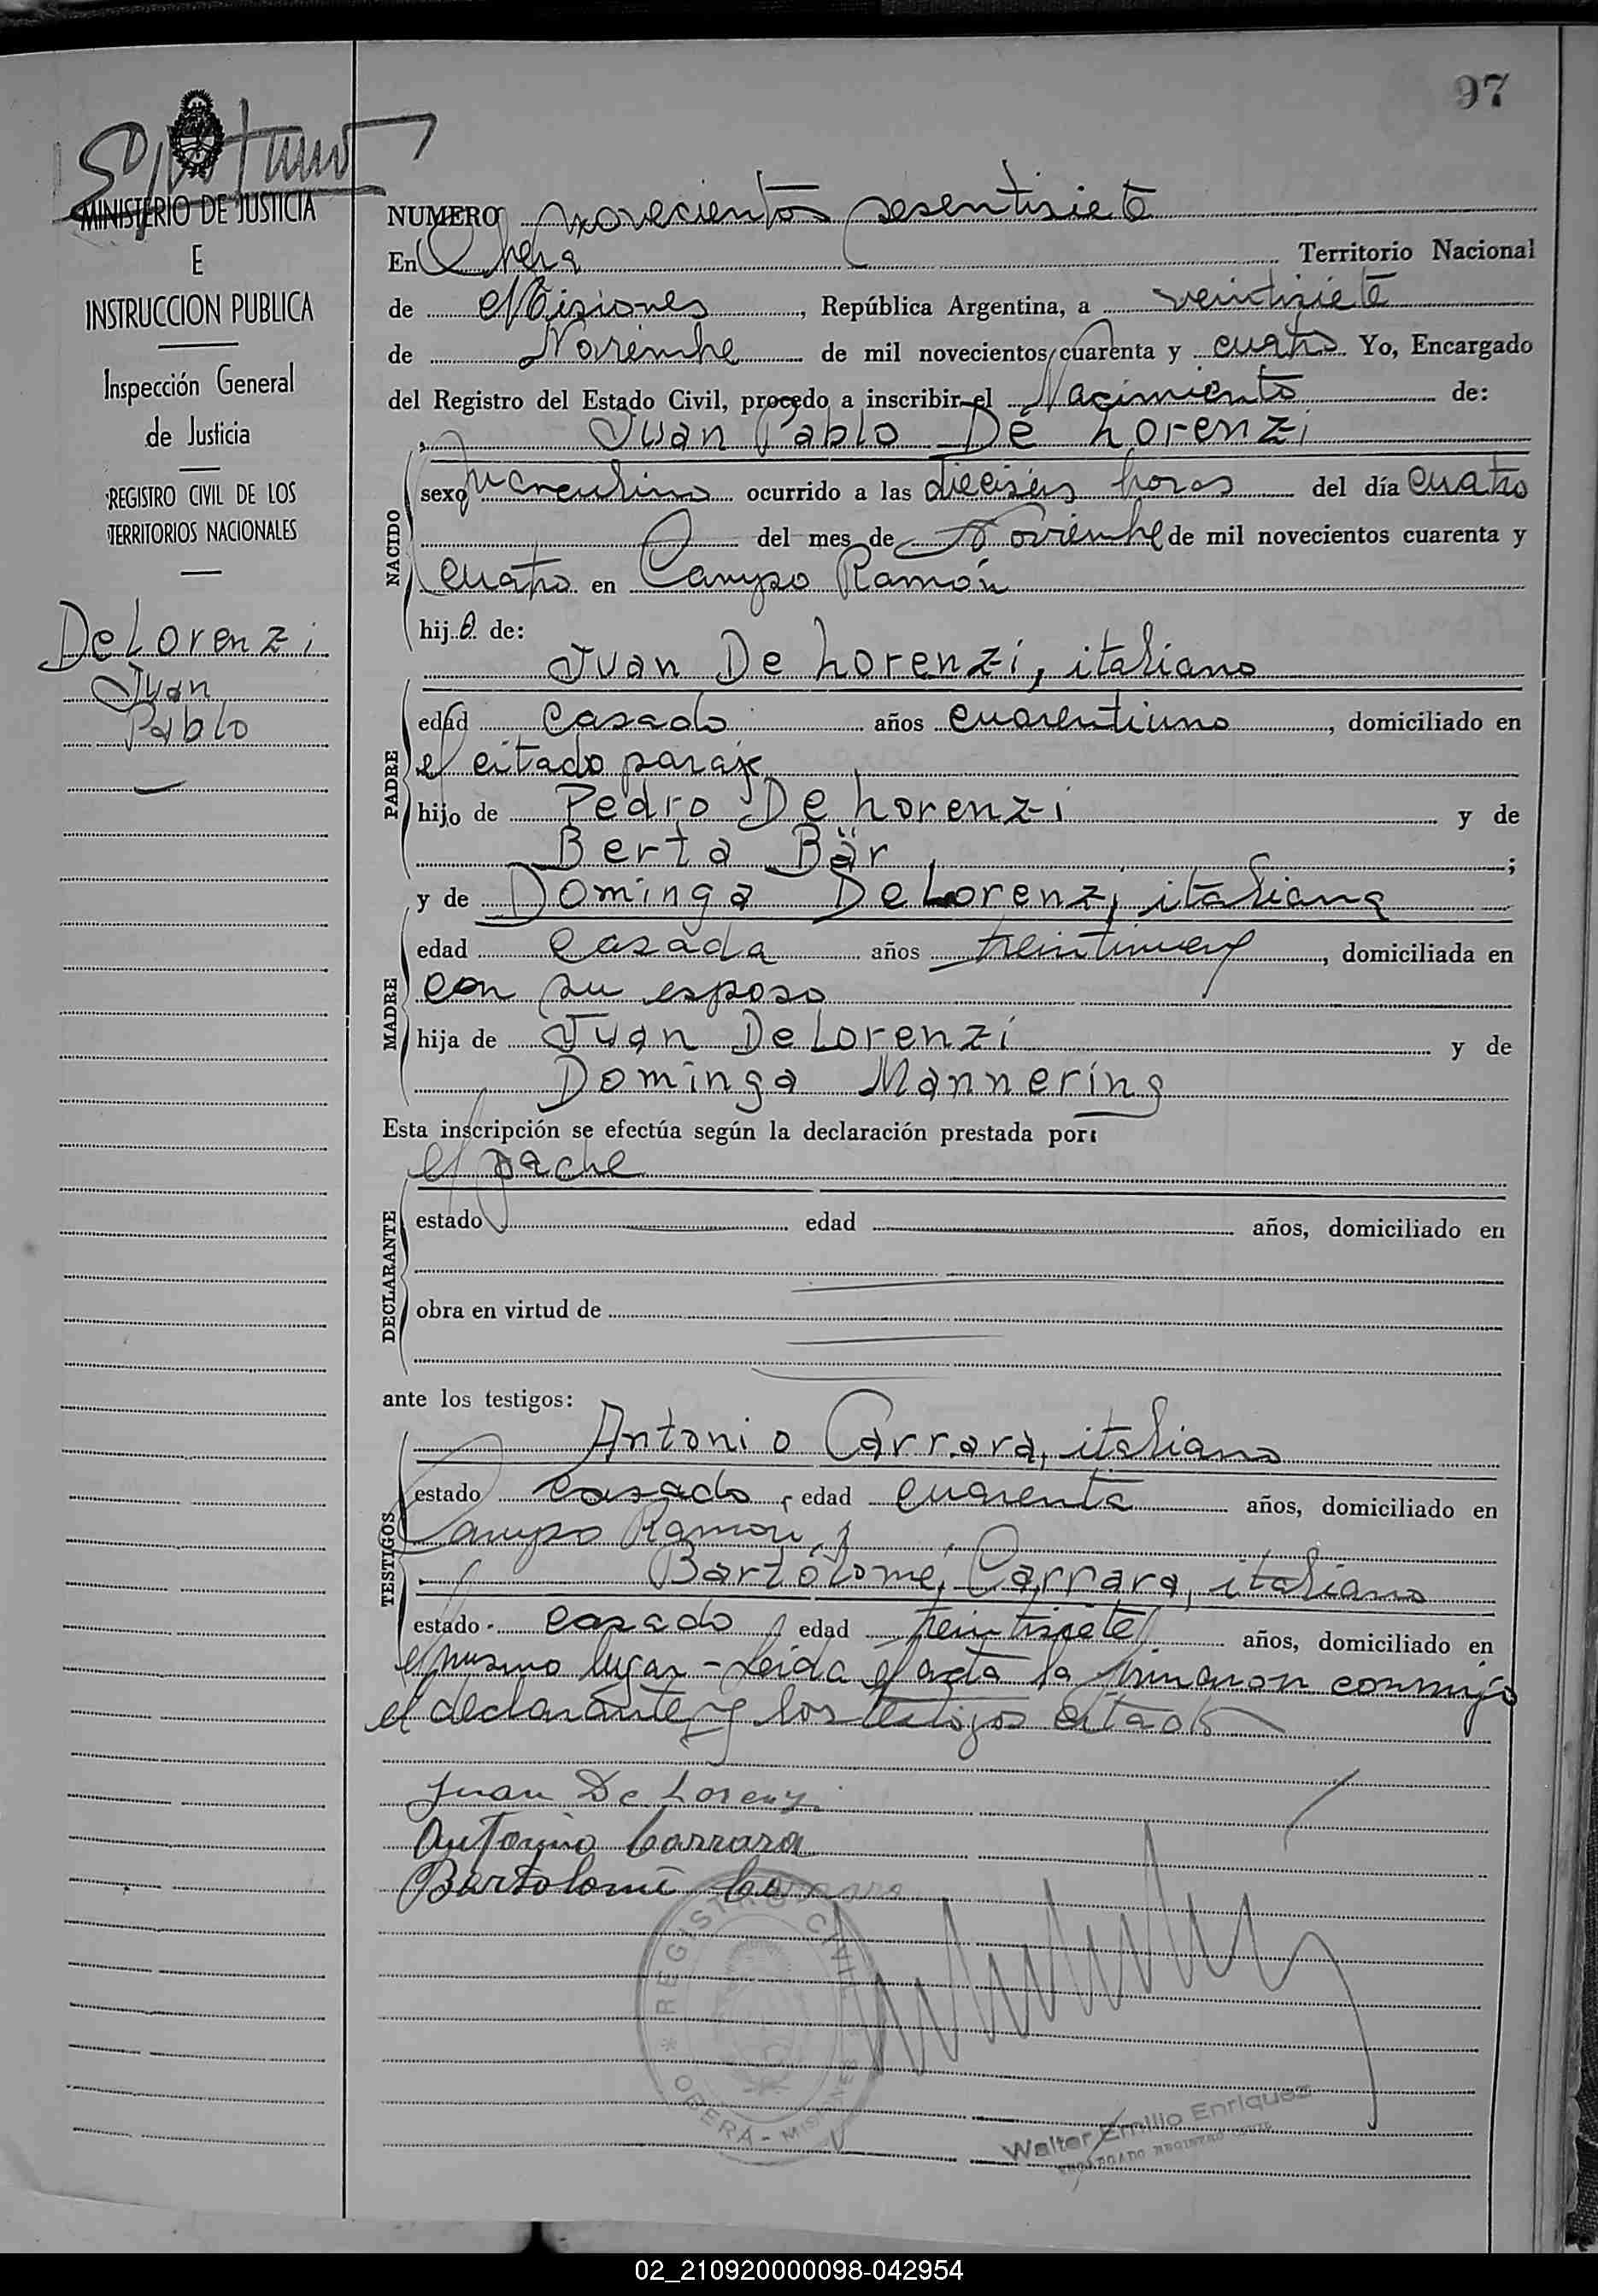 97
MINISTERIO DE JUSTICIA
E
INSTRUCCION PUBLICA
Inspección General
de Justicia
REGISTRO CIVIL DE LOS
TERRITORIOS NACIONALES
De Lorenzi
Juan
Pablo
NUMERO novecientos sesentisiete
En Obera Territorio Nacional
de Misiones, República Argentina, a veintisiete
de Noviembre de mil novecientos cuarenta y cuatro Yo, Encargado
del Registro del Estado Civil, procedo a inscribir el Nacimiento de:
Juan Pablo De Lorenzi
NACIDO
sexo masculino ocurrido a las dieciséis horas del día cuatro
del mes de Noviembre de mil novecientos cuarenta y
cuatro en Campo Ramón
hijo de:
Juan De Lorenzi, italiano
PADRE
edad casado años cuarentiuno, domiciliado en
el citado paraje
hijo de Pedro De Lorenzi y de
Berta Bär;
y de Dominga De Lorenzi, italiana
MADRE
edad casada años, domiciliada en
con su esposo
hija de Juan De Lorenzi y de
Dominga Mannering
Esta inscripción se efectúa según la declaración prestada por:
el padre
DECLARANTE
estado edad años, domiciliado en
obra en virtud de
ante los testigos:
Antonio Carrara, italiano
TESTIGOS
estado casado, edad cuarenta años, domiciliado en
Campo Ramón y
Bartolomé Carrara, italiano
estado casado edad treintisiete años, domiciliado en
el mismo lugar - Leida el acta la firmaron conmigo
el declarante y los testigos citados
Juan De Lorenzi
Antonio Carrara
Bartolomé Carrara
REGISTRO CIVIL
OBERÁ - MISIONES
Walter Emilio Enriquez
ENCARGADO REGISTRO CIVIL
02_210920000098-042954